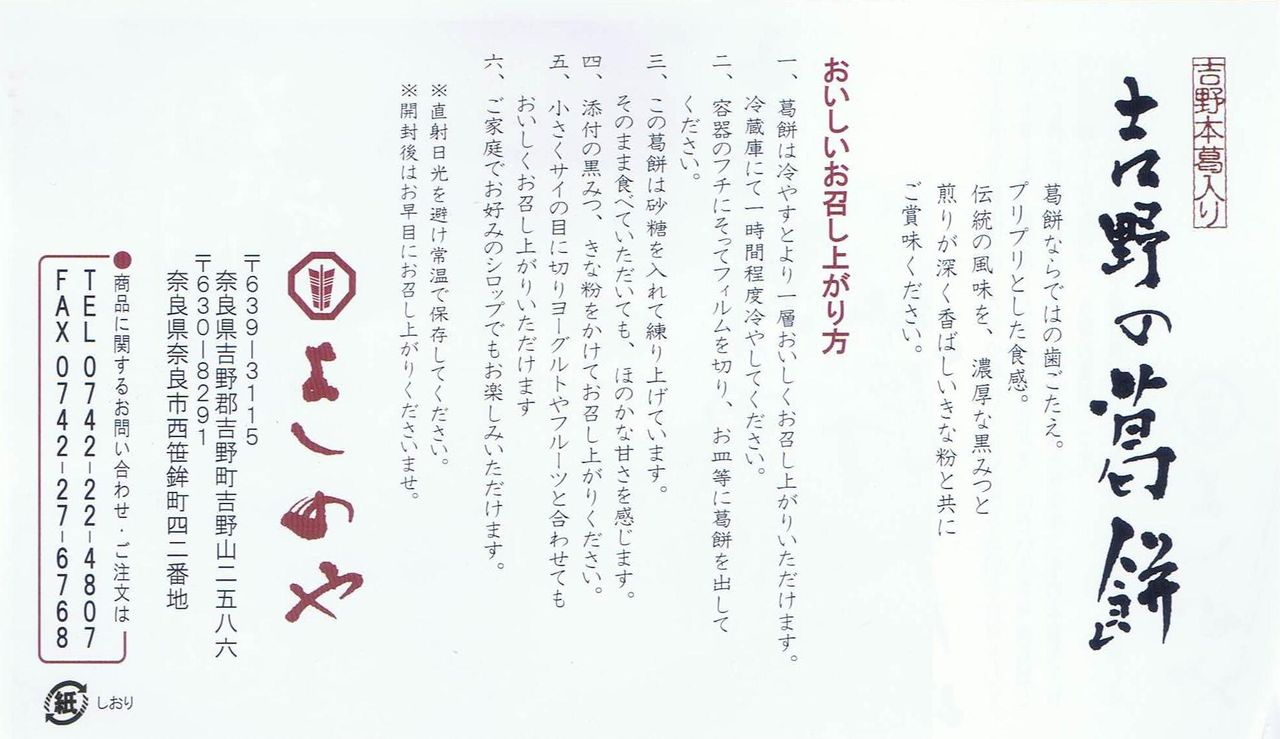 吉野本葛入り
吉野の葛餅
葛餅ならではの歯ごたえ。
プリプリとした食感。
伝統の風味を、濃厚な黒みつと
煎りが深く香ばしいきな粉と共に
ご賞味ください。
おいしいお召し上がり方
一、葛餅は冷やすとより一層おいしくお召し上がりいただけます。
冷蔵庫にて一時間程度冷やしてください。
二、容器のフチにそってフィルムを切り、お皿等に葛餅を出して
ください。
三、この葛餅は砂糖を入れて練り上げています。
そのまま食べていただいても、ほのかな甘さを感じます。
四、添付の黒みつ、きな粉をかけてお召し上がりください。
五、小さくサイの目に切りヨーグルトやフルーツと合わせても
おいしくお召し上がりいただけます
六、ご家庭でお好みのシロップでもお楽しみいただけます。
※直射日光を避け常温で保存してください。
※開封後はお早目にお召し上がりくださいませ。
よしのや
〒639-3115
奈良県吉野郡吉野町吉野山二五八六
〒630-8291
奈良県奈良市西笹鉾町四二番地
●商品に関するお問い合わせ・ご注文は
TEL 0742-22-4807
FAX 0742-27-6768
紙 しおり